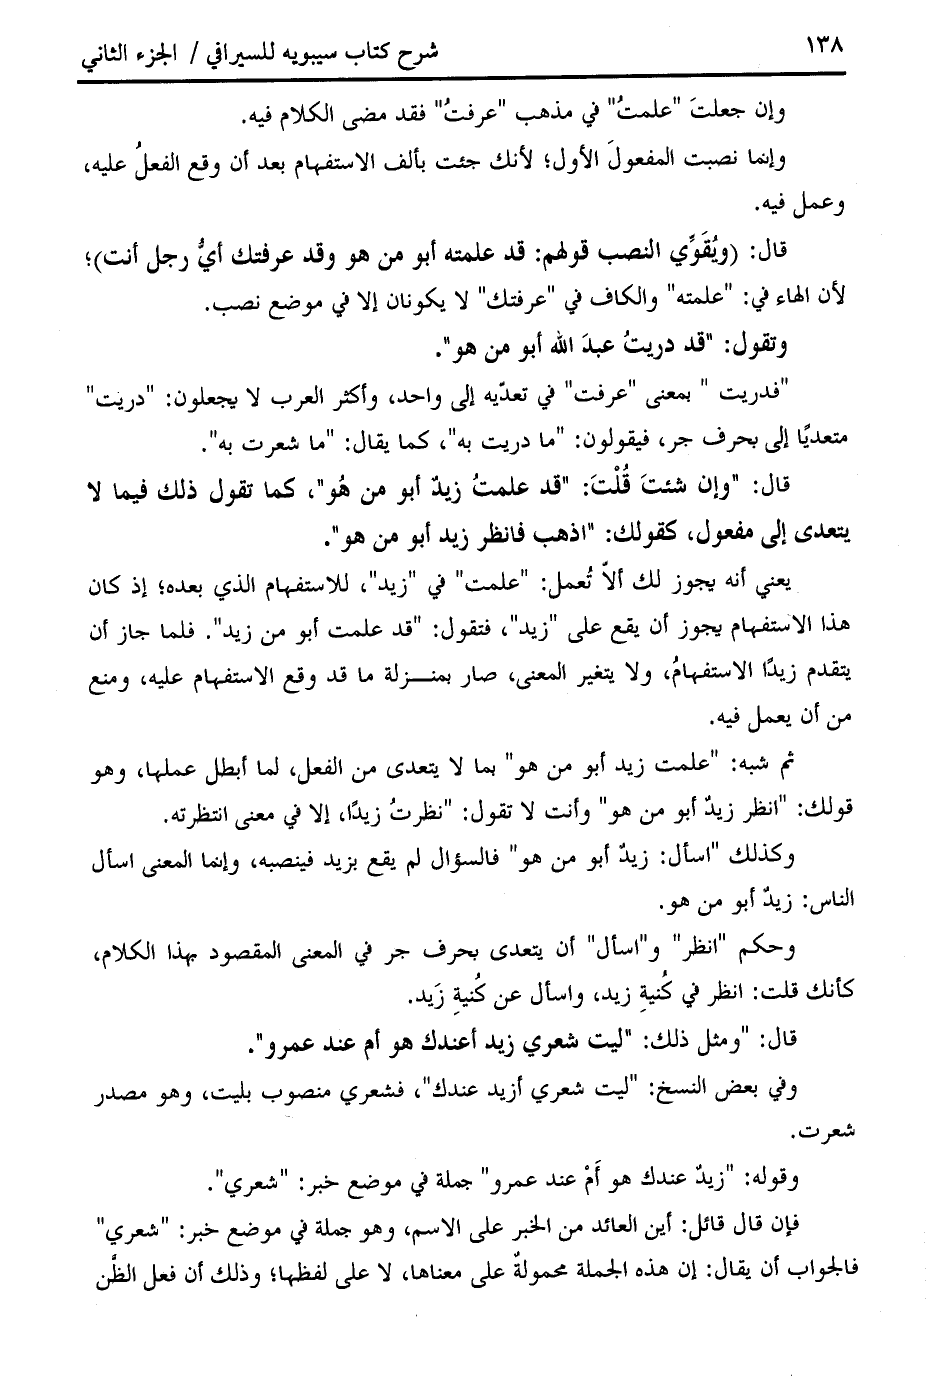 ١٣٨
شرح كتاب سيبويه للسيرافي / الجزء الثاني
وإن جعلتَ "علمتُ" في مذهب "عرفتُ" فقد مضى الكلام فيه.
وإنما نصبت المفعولَ الأول؛ لأنك جئت بألف الاستفهام بعد أن وقع الفعلُ عليه،
وعمل فيه.
قال: (ويُقَوِّي النصب قولهم: قد علمته أبو من هو وقد عرفتك أيُّ رجل أنت)؛
لأن الهاء في: "علمته" والكاف في "عرفتك" لا يكونان إلا في موضع نصب.
وتقول: "قد دريتُ عبدَ الله أبو من هو".
"فدريت " بمعنى "عرفت" في تعدّيه إلى واحد، وأكثر العرب لا يجعلون: "دريت"
متعديًا إلى بحرف جر، فيقولون: "ما دريت به"، كما يقال: "ما شعرت به".
قال: "وإن شئتَ قُلْتَ: "قد علمتُ زيدٌ أبو من هُو"، كما تقول ذلك فيما لا
يتعدى إلى مفعول، كقولك: "اذهب فانظر زيد أبو من هو".
يعني أنه يجوز لك ألاّ تُعمل: "علمت" في "زيد"، للاستفهام الذي بعده؛ إذ كان
هذا الاستفهام يجوز أن يقع على "زيد"، فتقول: "قد علمت أبو من زيد". فلما جاز أن
يتقدم زيدًا الاستفهامُ، ولا يتغير المعنى، صار بمنـزلة ما قد وقع الاستفهام عليه، ومنع
من أن يعمل فيه.
ثم شبه: "علمت زيد أبو من هو" بما لا يتعدى من الفعل، لما أبطل عملها، وهو
قولك: "انظر زيدٌ أبو من هو" وأنت لا تقول: "نظرتُ زيدًا، إلا في معنى انتظرته.
وكذلك "اسأل: زيدٌ أبو من هو" فالسؤال لم يقع بزيد فينصبه، وإنما المعنى اسأل
الناس: زيدٌ أبو من هو.
وحكم "انظر" و"اسأل" أن يتعدى بحرف جر في المعنى المقصود بهذا الكلام،
كأنك قلت: انظر في كُنيةِ زيد، واسأل عن كُنيةِ زَيد.
قال: "ومثل ذلك: "ليت شعري زيد أعندك هو أم عند عمرو".
وفي بعض النسخ: "ليت شعري أزيد عندك"، فشعري منصوب بليت، وهو مصدر
شعرت.
وقوله: "زيدٌ عندك هو أَمْ عند عمرو" جملة في موضع خبر: "شعري".
فإن قال قائل: أين العائد من الخبر على الاسم، وهو جملة في موضع خبر: "شعري"
فالجواب أن يقال: إن هذه الجملة محمولةٌ على معناها، لا على لفظها؛ وذلك أن فعل الظَّن